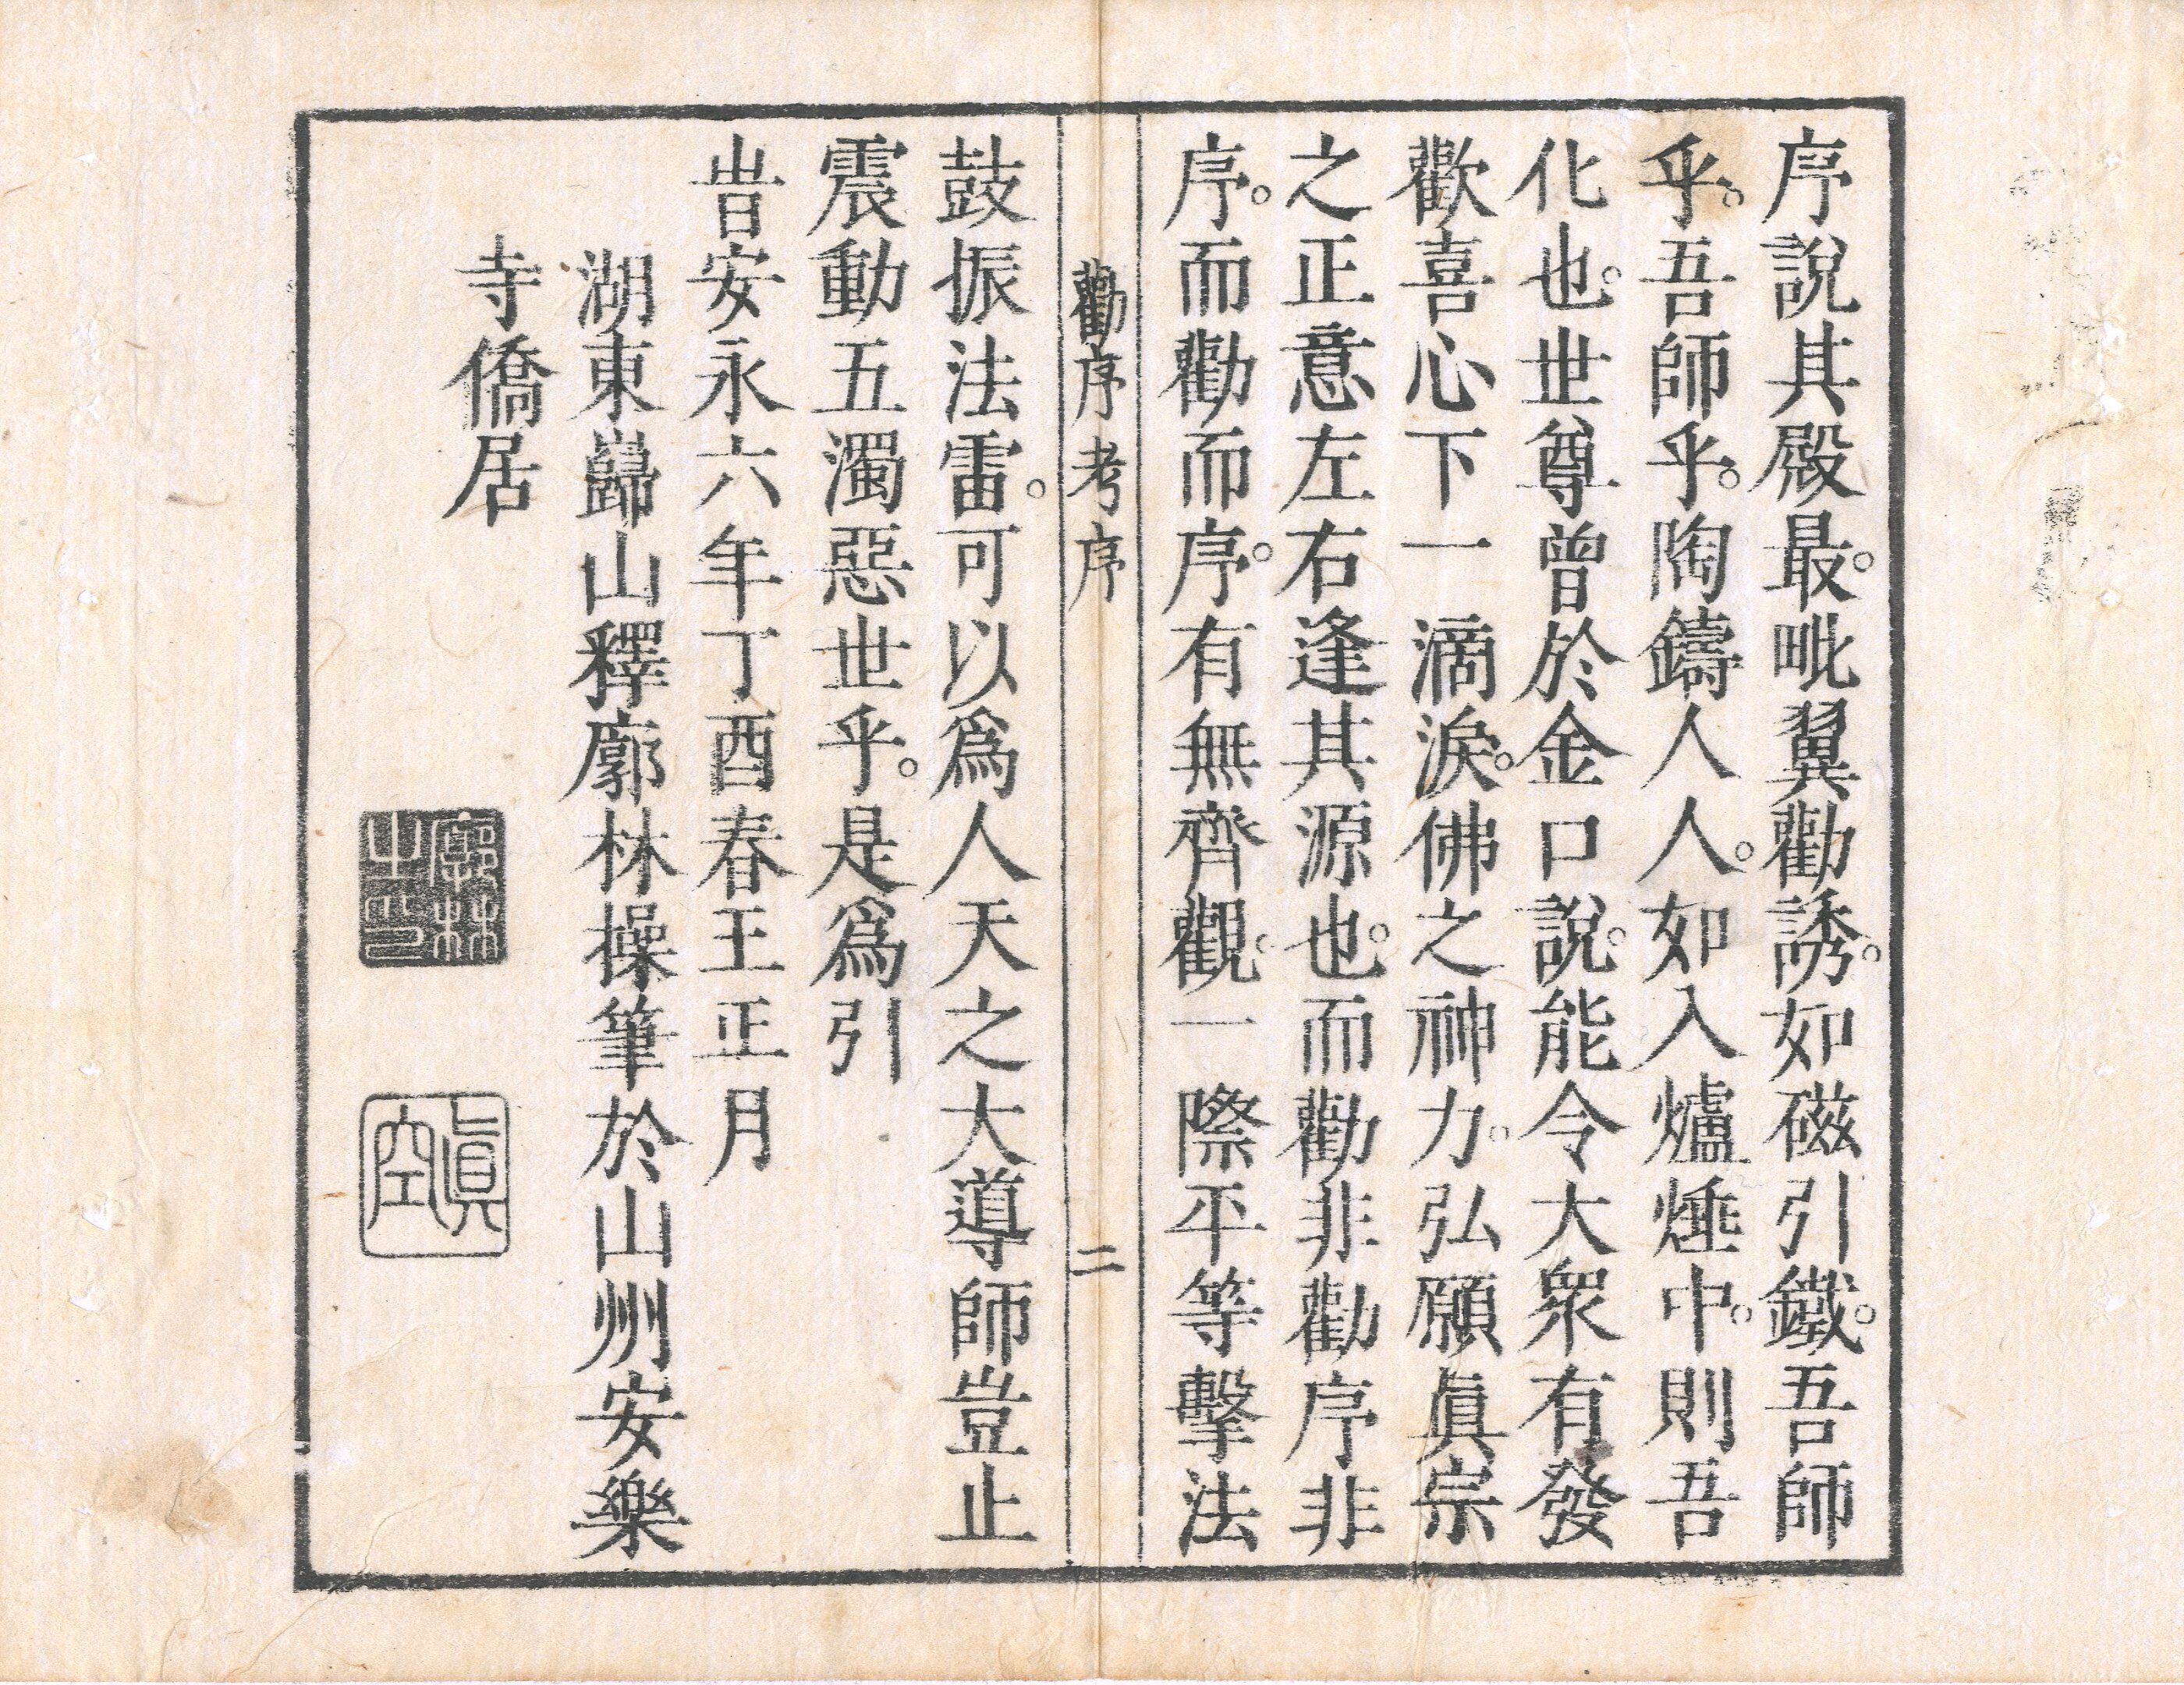 序說其殿最。毗翼勸誘。如磁引鐵。吾師
乎。吾師乎。陶鑄人人。如入爐煙中。則吾
化也。世尊曾於金口說。能令大衆有發
歡喜心下一滴淚。佛之神力。弘願眞宗
之正意左右逢其源也。而勸非勸序非
序。而勸而序。有無齊觀。一際平等擊法
勸序考序 二
鼓振法雷。可以爲人天之大導師豈止
震動五濁惡世乎。是爲引
旹安永六年丁酉春王正月
湖東巋山釋廓林操筆於山州安樂
寺僑居
廓林之印
眞空